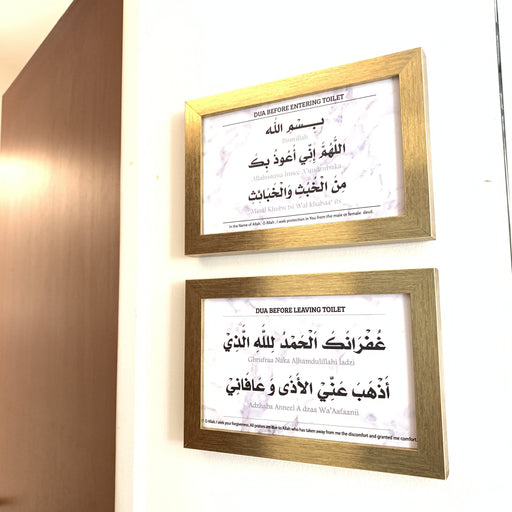 DUA BEFORE ENTERING TOILET
بِسْمِ الله
Bismillah
اللَّهُمَّ إِنِّي أَعُوذُ بِكَ
Allahumma Innee A'uudzubika
مِنَ الْخُبْثِ وَالْخَبَائِثِ
Minal Khubu thi Wal khabaa' its
In the Name of Allah, O Allah, I seek protection in You from the male or female devil.
DUA BEFORE LEAVING TOILET
غُفْرَانَكَ الْحَمْدُ لِلَّهِ الَّذِيْ
Ghrufraa Naka Alhamdulillahi ladzi
أَذْهَبَ عَنِّيْ الأَذَى وَ عَافَانِيْ
Adzhaba Anneel A dzaa Wa'Aafaanii
O Allah, I seek your forgiveness. All praises are due to Allah who has taken away from me the discomfort and granted me comfort.